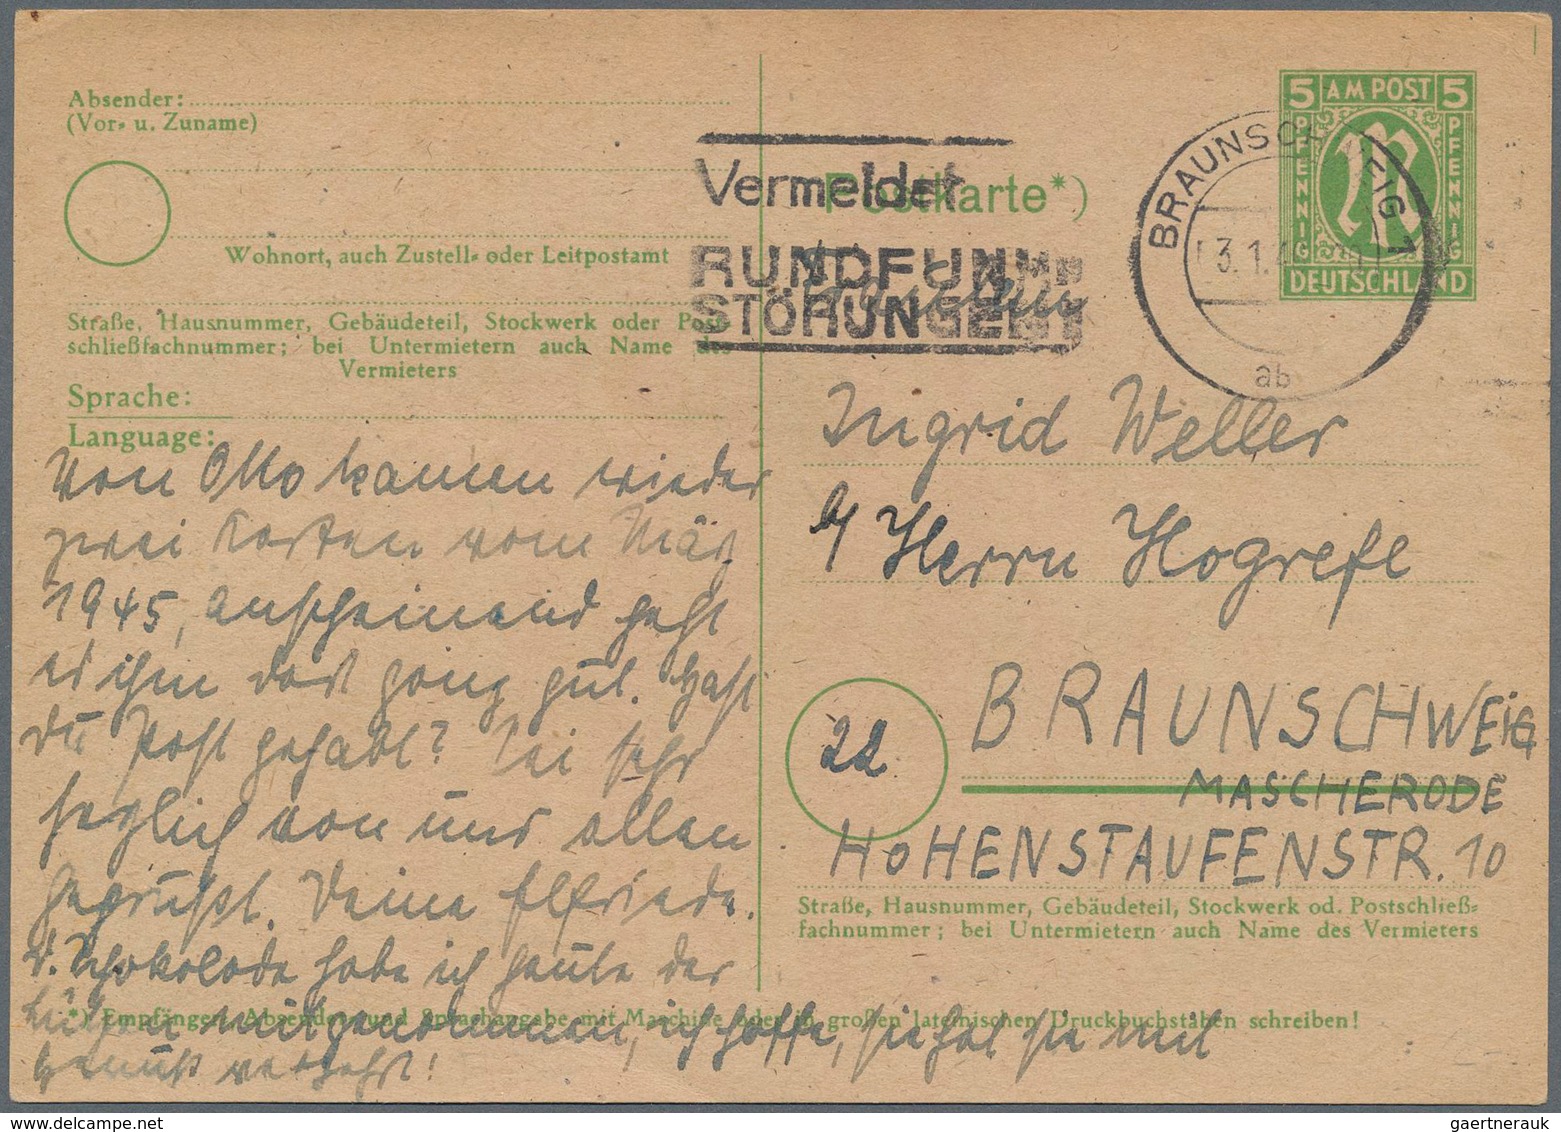 Absender:
(Vor- u. Zuname)
Wohnort, auch Zustell- oder Leitpostamt
Straße, Hausnummer, Gebäudeteil, Stockwerk oder Post-
schließfachnummer; bei Untermietern auch Name des
Vermieters
Sprache:
Language:
Von Otto kamen wieder
zwei Karten vom März
1945, anscheinend geht
es ihm dort ganz gut. Hast
du Post gehabt? Sei sehr
herzlich von uns allen
gegrüßt. Deine Elfriede.
d. Schokolade habe ich heute der
mitgenommen, ich hoffe, sie hat sie mit
Genuß verzehrt!
*) Empfänger, Absender und Sprachangabe mit Maschine oder in großen lateinischen Druckbuchstaben schreiben!
Vermeidet
RUNDFUNK
STÖRUNGEN
Postkarte*)
Fräulein
BRAUNSCHWEIG 1
3.1.4
ab
5 AM POST 5
PFENNIG
PFENNIG
DEUTSCHLAND
Ingrid Weller
b/ Herrn Hogrefe
22
BRAUNSCHWEIG
MASCHERODE
HOHENSTAUFENSTR. 10
Straße, Hausnummer, Gebäudeteil, Stockwerk od. Postschließ-
fachnummer; bei Untermietern auch Name des Vermieters
gaertnerauk